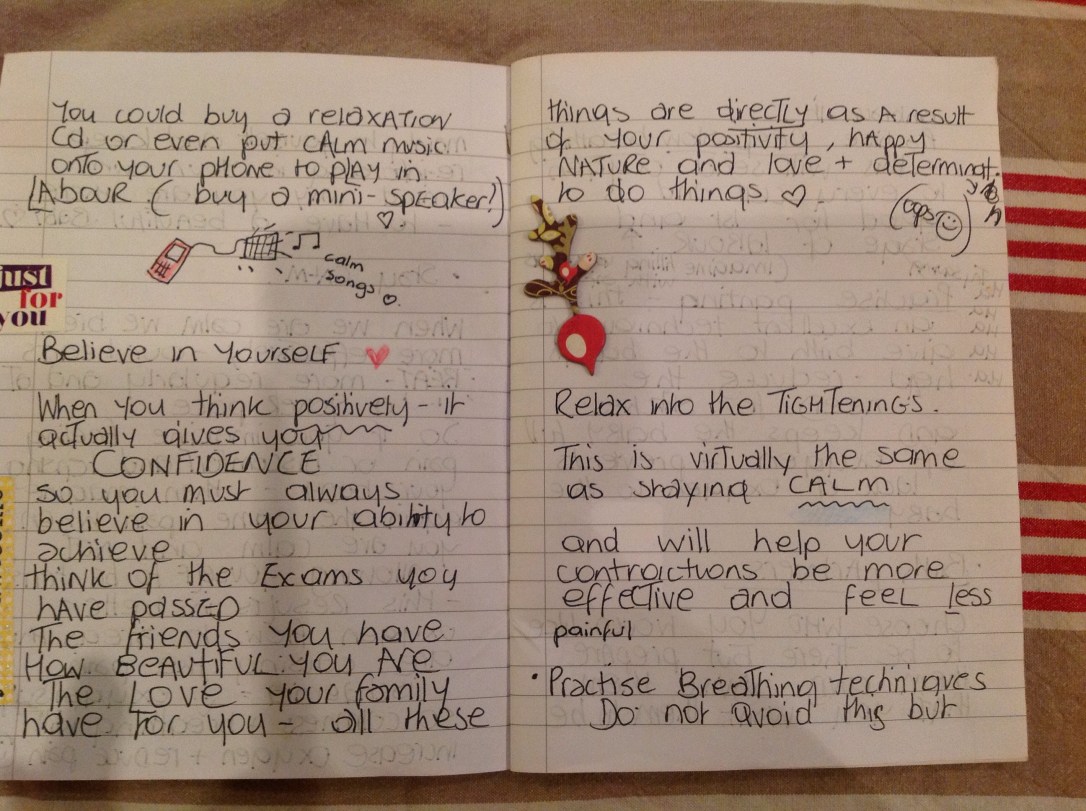 You could buy a relaxation
Cd or even put calm music
onto your phone to play in
labour ( buy a mini-speaker!)
calm
songs
just
for
you
Believe in Yourself
When you think positively - it
actually gives you
CONFIDENCE
so you must always
believe in your ability to
achieve
think of the Exams you
have passed
The friends you have
How Beautiful you Are
The Love your family
have for you - all these
things are directly as A result
of your positivity, happy
NATURE and love + determination
to do things.
(oops)
Relax into the Tightenings.
This is virtually the same
as staying CALM
and will help your
contractions be more
effective and feel less
painful
• Practise Breathing techniques
Do not avoid this but